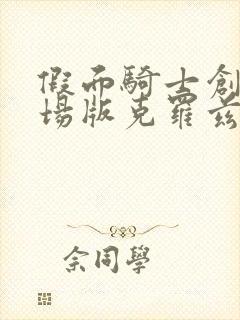 假面騎士創
場版克羅茲
佘同學